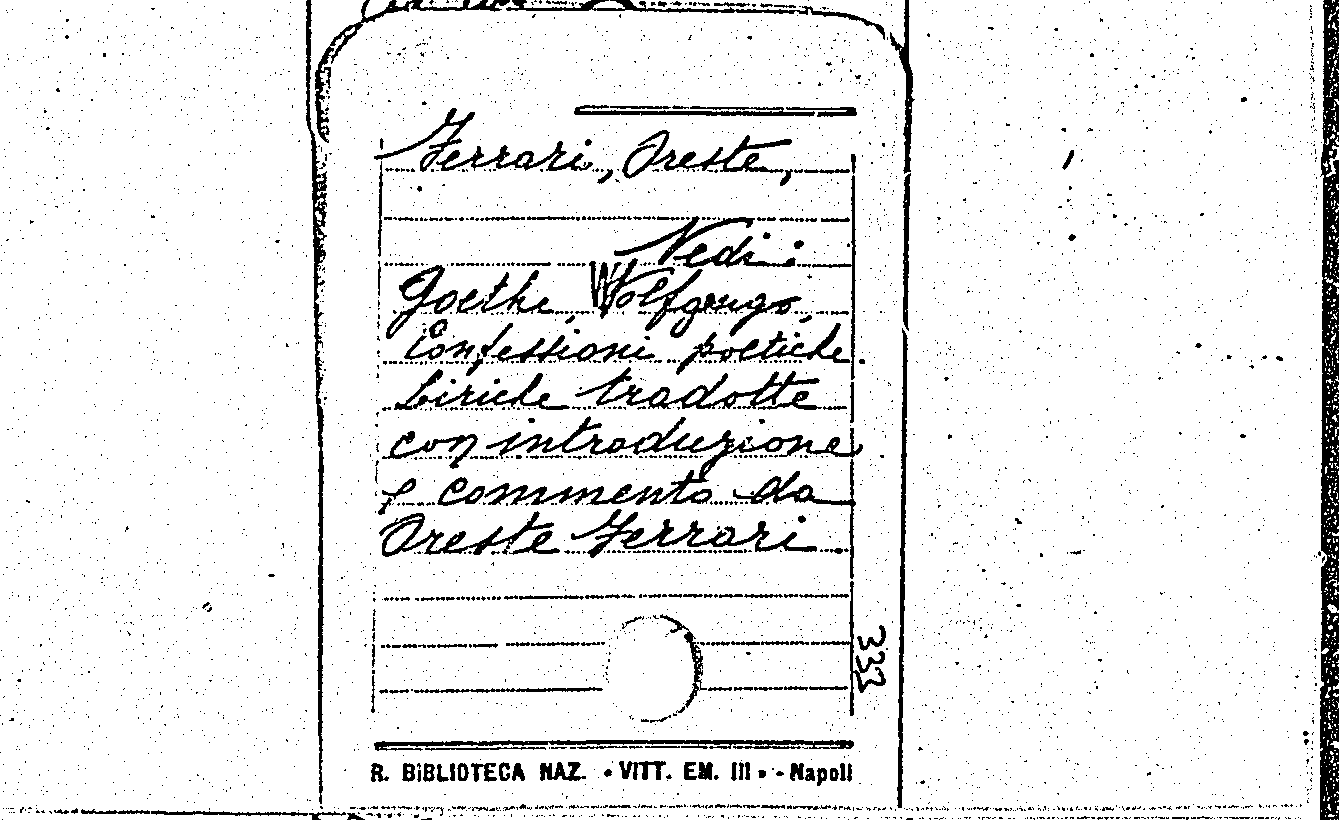 Ferrari, Oreste,
Vedi:
Goethe, Wolfgango,
Confessioni poetiche.
Liriche tradotte
con introduzione
e commento da
Oreste Ferrari.
333
R. BIBLIOTECA NAZ. • VITT. EM. III • - Napoli